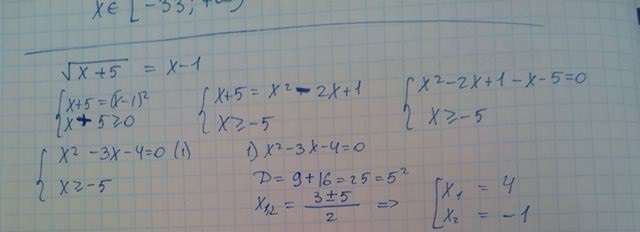 x ∈ [-33; +∞)
√x+5 = x-1
{ x+5=(x-1)² { x+5 = x² - 2x+1 { x²-2x+1-x-5=0
x+5≥0 x≥-5 x≥-5
{ x²-3x-4=0 (1) 1) x²-3x-4=0
x≥-5 D=9+16=25=5²
x₁,₂ = 3±5/2 => [ x₁ = 4
x₂ = -1